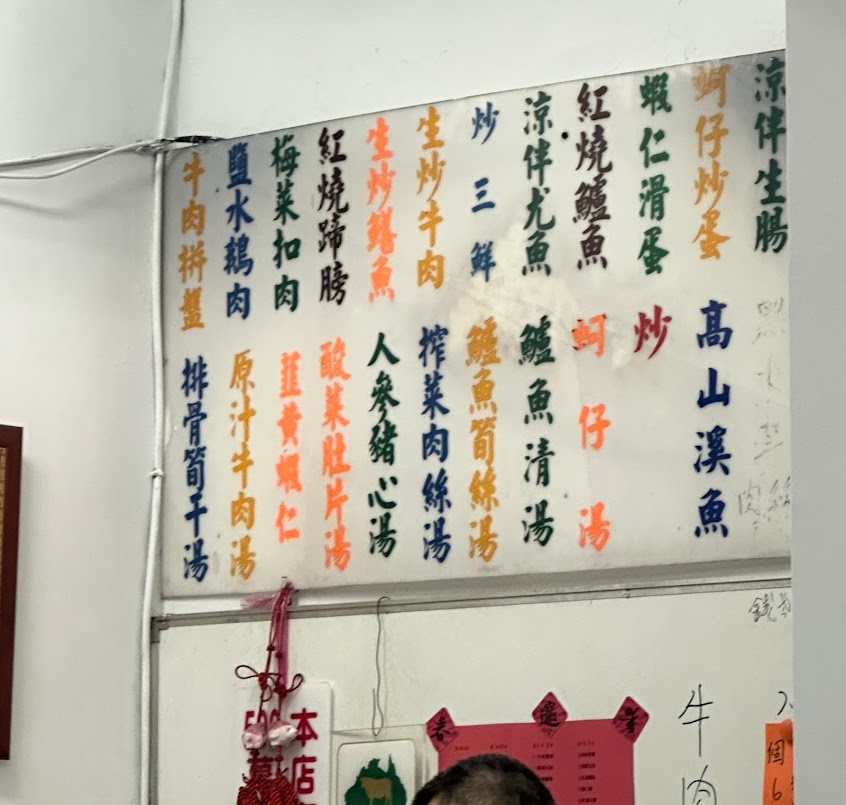 涼伴生腸
蚵仔炒蛋
蝦仁滑蛋
紅燒鱸魚
涼伴尤魚
炒三鮮
生炒牛肉
生炒鱔魚
紅燒蹄膀
梅菜扣肉
鹽水鵝肉
牛肉拼盤
高山溪魚
炒
蚵仔湯
鱸魚清湯
鱸魚筍絲湯
榨菜肉絲湯
人參豬心湯
酸菜肚片湯
韮黃蝦仁
原汁牛肉湯
排骨筍干湯
牛肉
個
6
本店